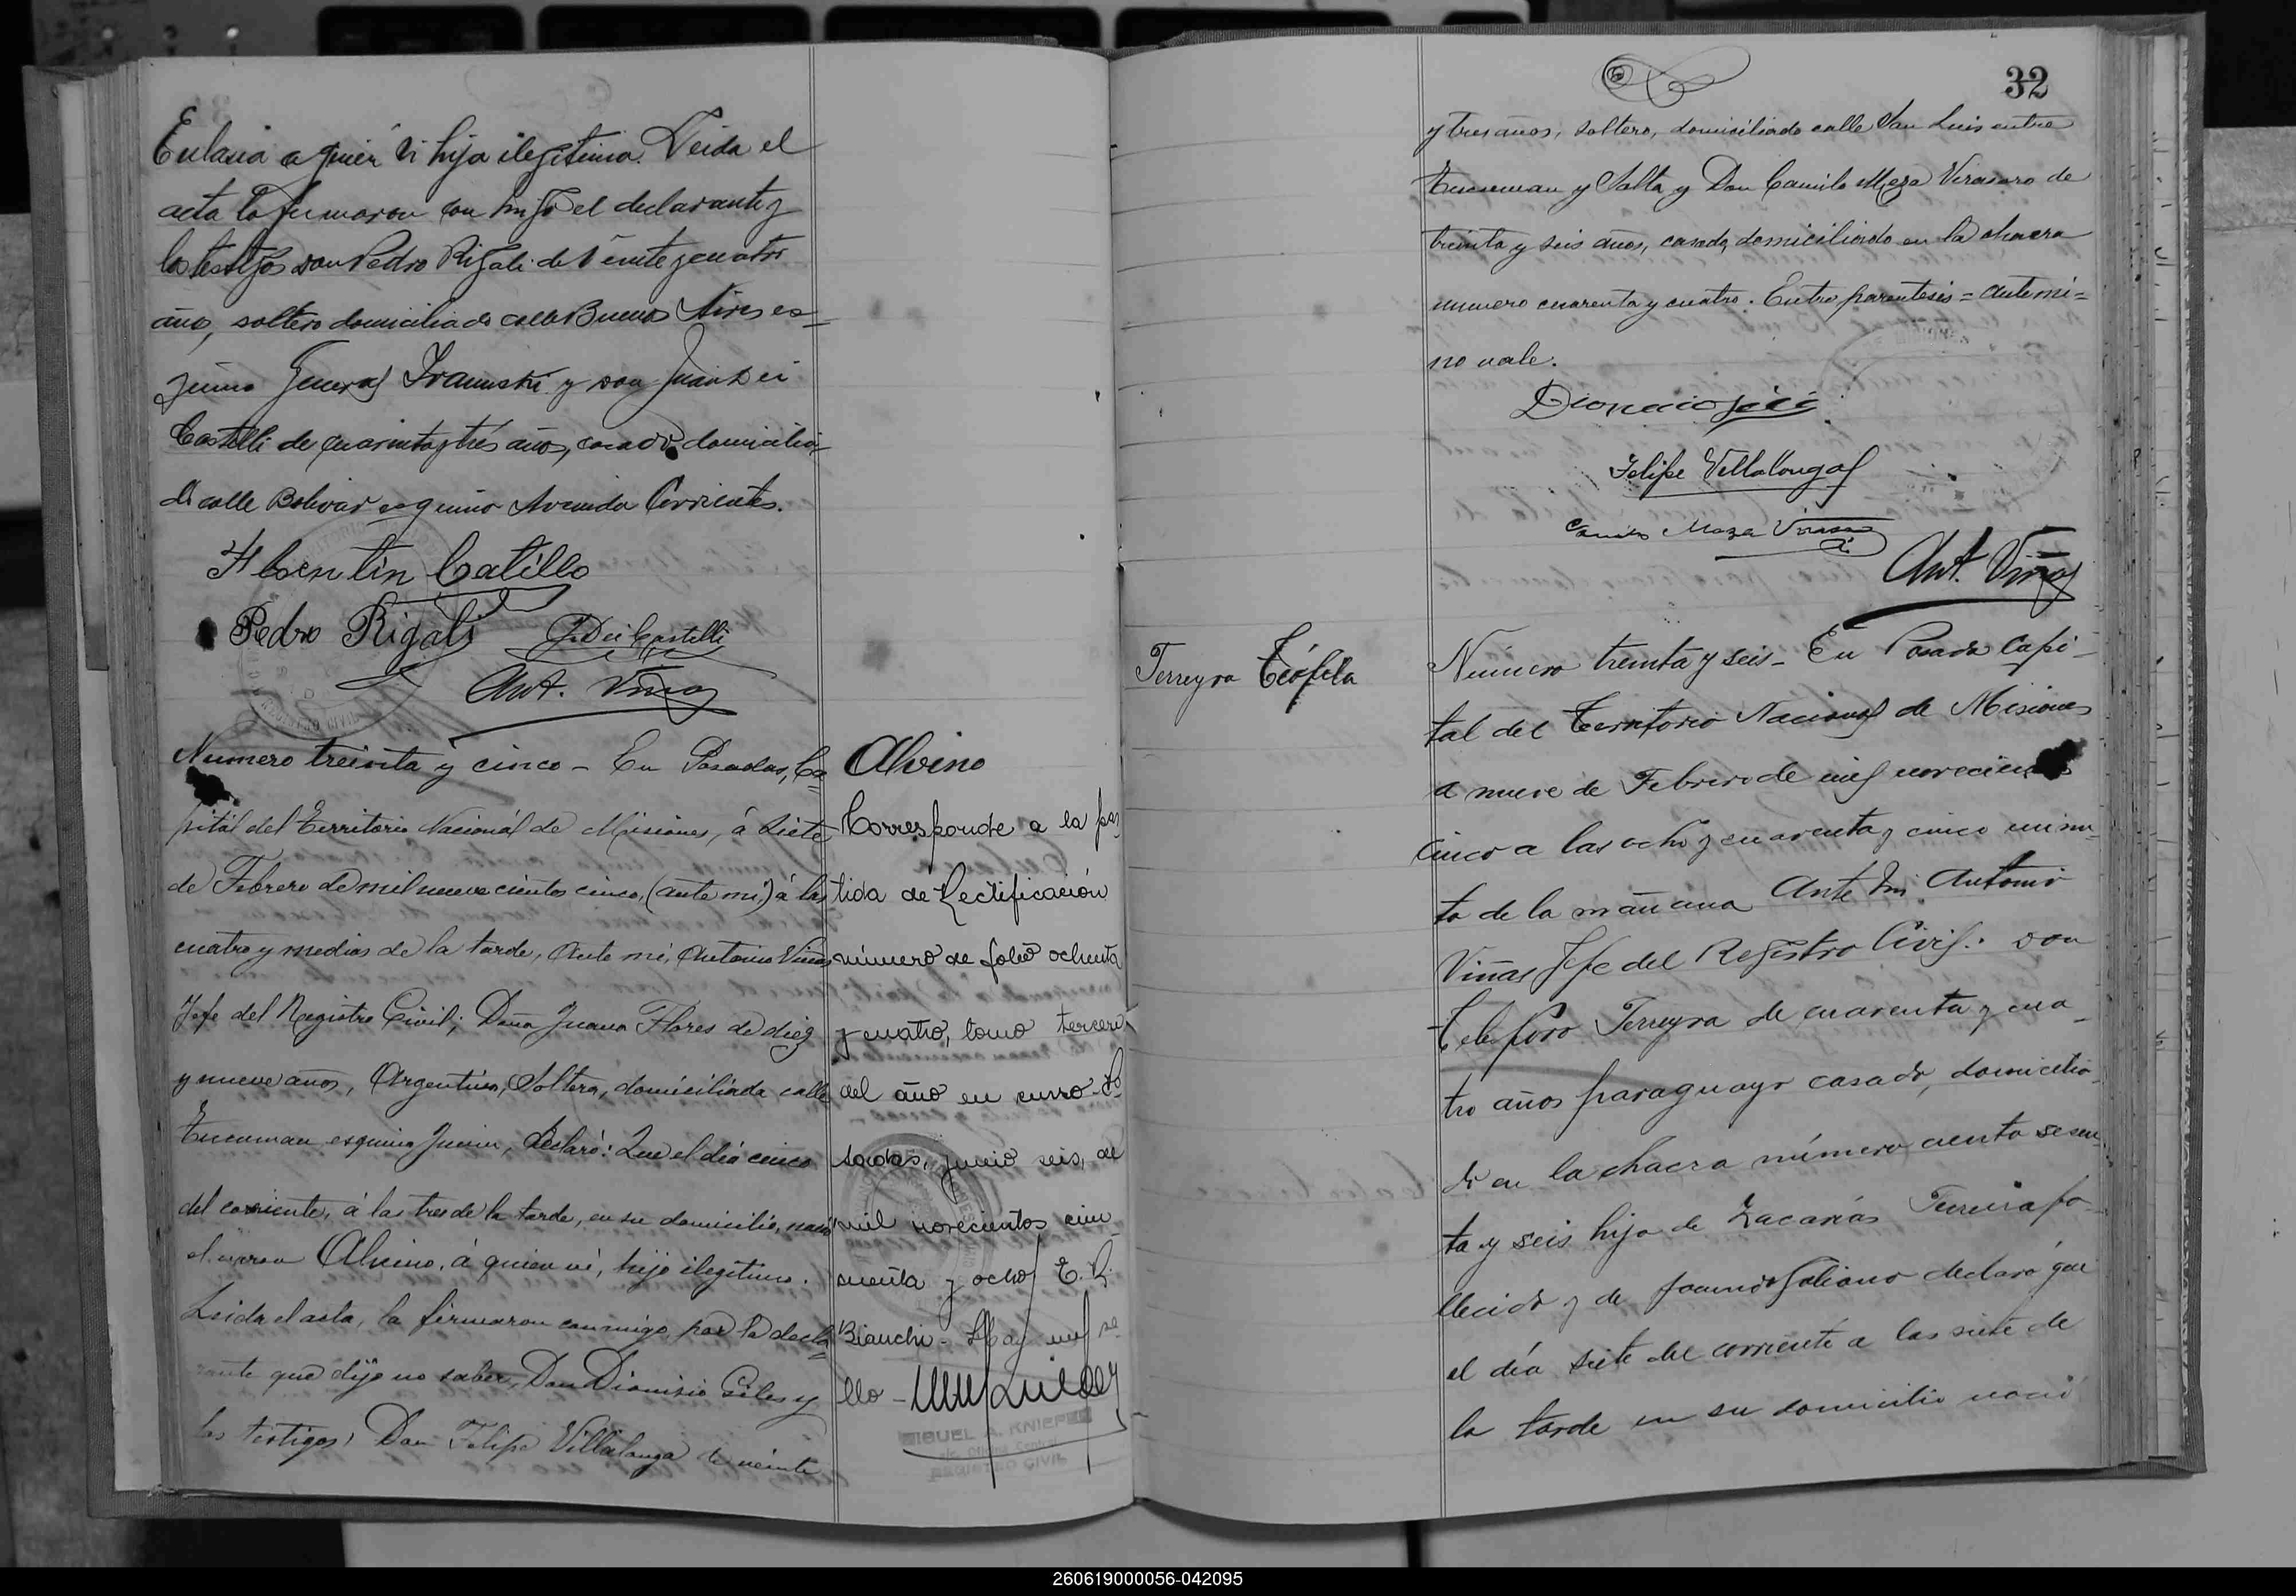 Eulasia a quien vi hija ilegitima. Leida el
acta la firmaron con migo el declarante y
los testigos don Pedro Rigali de veinte y cuatro
años, soltero domiciliado calle Buenos Aires es-
quina General y don Juan Dei
Castelli de cuarenta y tres años, casado domicilia-
do calle Bolivar esquina Avenida Corrientes.
Florentin Catillo
Pedro Rigali J. Dei Castelli
Ant. Viñas
Numero treinta y cinco - En Posadas, Ca=
pital del Territorio Nacional de Misiones, á siete
de Febrero de mil nueve cientos cinco, (ante mi,) á las
cuatro y media de la tarde, Ante mi, Antonio Viñas
Jefe del Registro Civil; Doña Juana Flores de diez
y nueve años, Argentina, Soltera, domiciliada calle
Tucuman esquina Junin, declaró: Que el día cinco
del corriente, á las tres de la tarde, en su domicilio, nació
el varon Alvino, á quien ví, hijo ilegitimo.
Leida el acta, la firmaron conmigo por la decla=
rante que dijo no saber, Don Dionisio Giles y
los testigos, Don Felipe Villalonga de veinte
Alvino
Corresponde a la par
tida de Rectificación
número de folio ochenta
y cuatro, tomo tercero
del año en curso. Po
sadas, junio seis, de
mil novecientos cin
cuenta y ocho/ E. R.
Bianchi - Hay un se
llo -
MIGUEL A. KNIEPER
Oficina Central
REGISTRO CIVIL
32
y tres años, soltero, domiciliado calle San Luis entre
Tucuman y Salta y Don Camilo Meza Virasoro de
treinta y seis años, casado, domiciliado en la chacra
numero cuarenta y cuatro. Entre parentesis = ante mi =
no vale.
Felipe Villalonga
Camilo Meza Virasoro
Ant. Viñas
Ferreyra Teófila
Número treinta y seis - En Posada Capi-
tal del Territorio Nacional de Misiones
a nueve de Febrero de mil novecientos
cinco a las ocho y cuarenta y cinco minu-
to de la mañana Ante mi Antonio
Viñas Jefe del Registro Civil: don
Telesforo Ferreyra de cuarenta y cua-
tro años paraguayo casado, domicilia-
do en la chacra número ciento sesen-
ta y seis hijo de Zacarías Ferreira fa-
llecido y de Galiano declaró que
el día siete del corriente a las siete de
la tarde en su domicilio nació
260619000056-042095